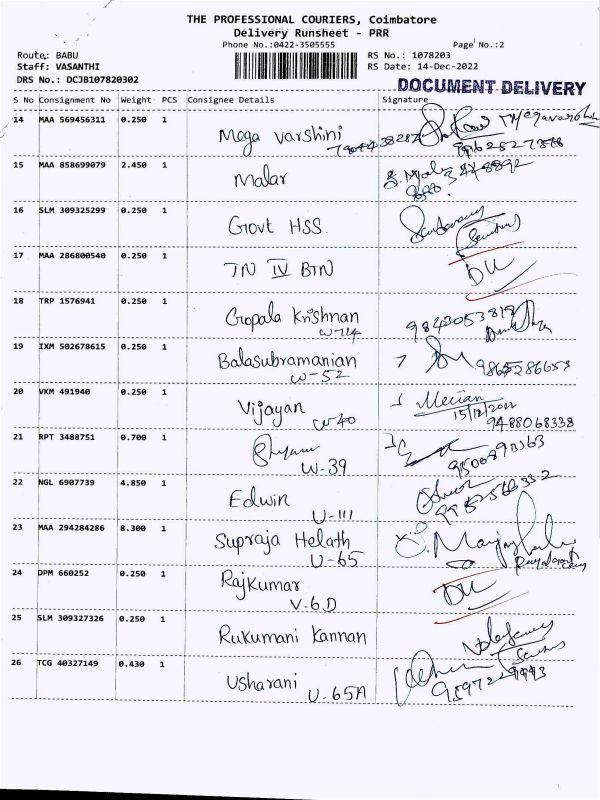 THE PROFESSIONAL COURIERS, Coimbatore
Delivery Runsheet - PRR
Phone No.:0422-3505555 Page No.:2
Route: BABU RS No.: 1078203
Staff: VASANTHI RS Date: 14-Dec-2022
DRS No.: DCJB107820302 DOCUMENT DELIVERY
S No Consignment No Weight PCS Consignee Details Signature
14 MAA 569456311 0.250 1
Mega varshini
15 MAA 858699079 2.450 1
Malar
16 SLM 309325299 0.250 1
Govt HSS
17 MAA 286800540 0.250 1
TN IV BTN DL
18 TRP 1576941 0.250 1
Gopala Krishnan
W-14
19 IXM 502678615 0.250 1
Balasubramanian
W-52
20 VKM 491940 0.250 1
Vijayan W40
15/12/2022
9488068338
21 RPT 3488751 0.700 1
Shyam
W-39
22 NGL 6907739 4.850 1
Edwin
U-111
23 MAA 294284286 8.300 1
Supraja Helath
U-65
24 DPM 660252 0.250 1
Rajkumar DL
V-6D
25 SLM 309327326 0.250 1
Rukumani Kannan
26 TCG 40327149 0.430 1
Usharani U-65A